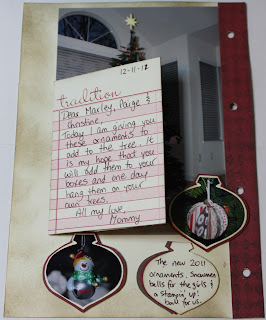 12-11-12
tradition
Dear Marley, Paige &
Christine,
Today I am giving you
these ornaments to
add to the tree. It
is my hope that you
will add them to your
boxes and one day
hang them on your
own trees.
All my love,
Mommy
The new 2011
ornaments. Snowmen
bells for the girls &
a stampin' up!
ball for us.